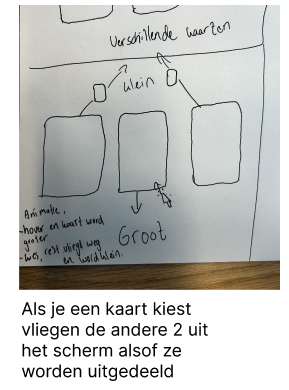 Verschillende kaarten
klein
Animatie.
-hover en kaart word
groter
rest vliegt weg
en word klein.
Groot
Als je een kaart kiest
vliegen de andere 2 uit
het scherm alsof ze
worden uitgedeeld